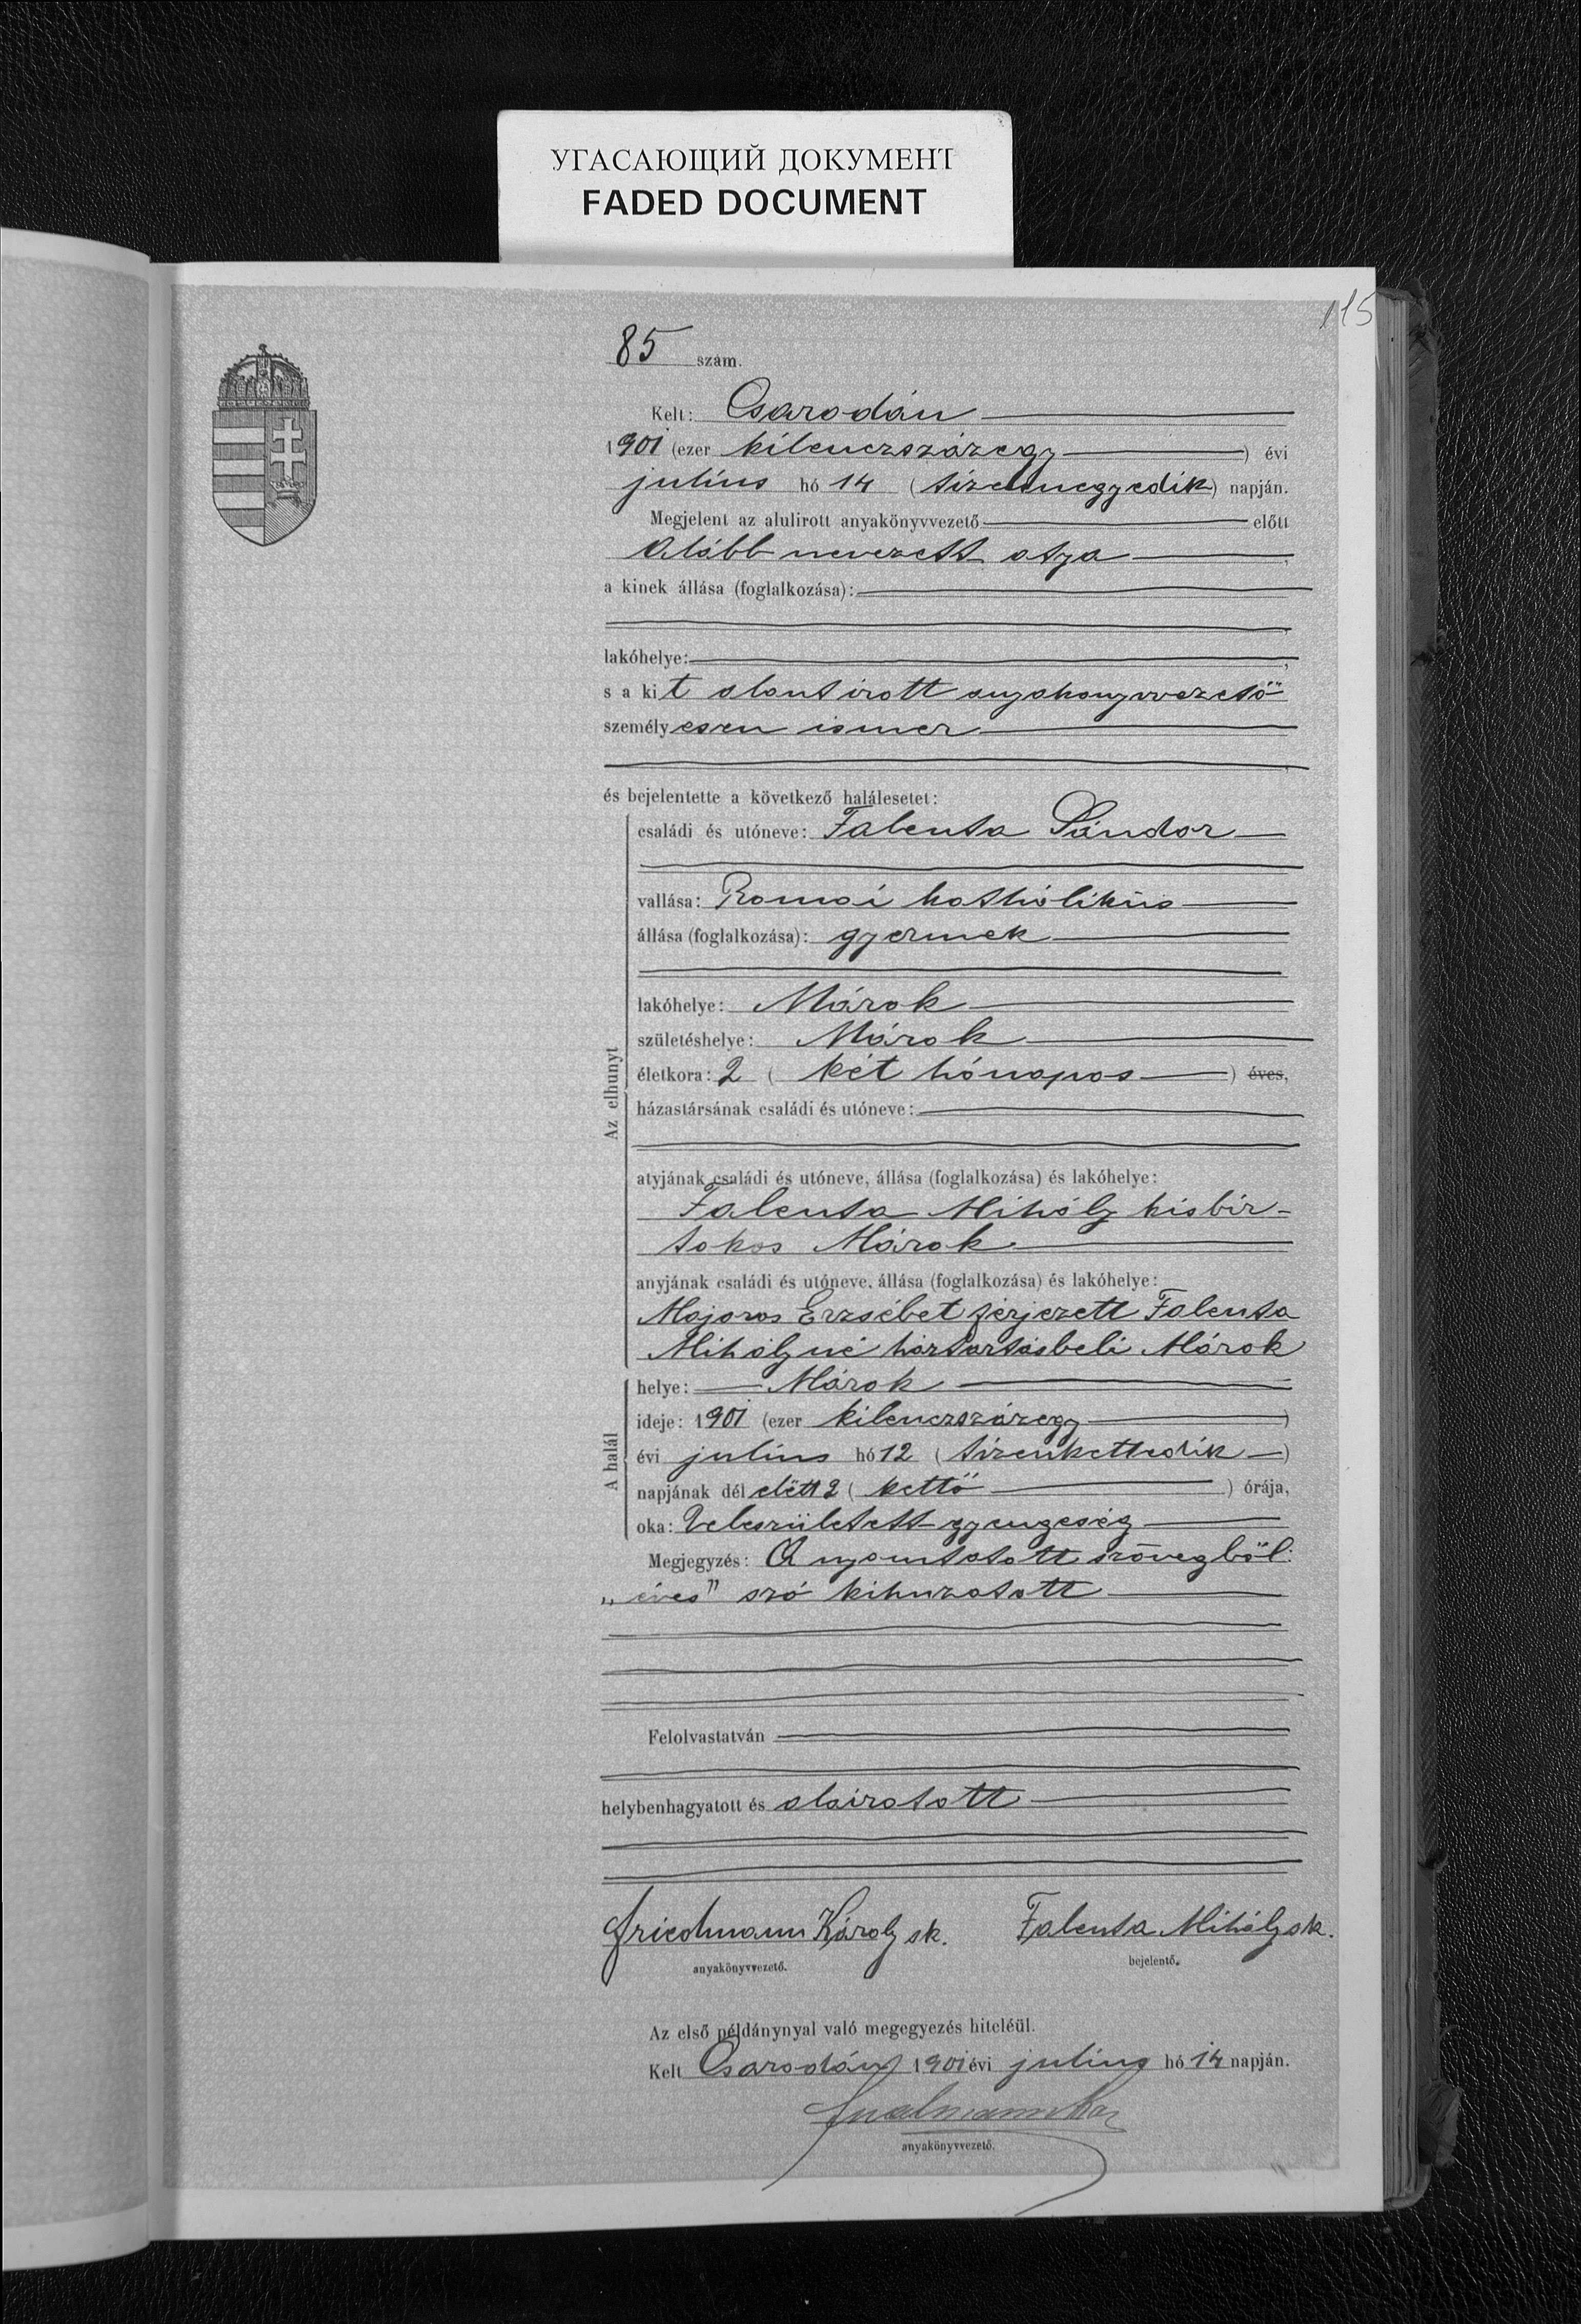 УГАСАЮЩИЙ ДОКУМЕНТ
FADED DOCUMENT
115
85 szám.
Kelt: Csarodán
1901 (ezer kilenczszázegy) évi
julius hó 14 (tizennegyedik) napján.
Megjelent az alulirott anyakönyvvezető előtt
Alább nevezett atya,
a kinek állása (foglalkozása):
lakóhelye:
s a kit alant irott anyakonyvvezető
személyesen ismer
és bejelentette a következő halálesetet:
Az elhunyt
családi és utóneve: Falenta Sándor
vallása: Romai katholikus
állása (foglalkozása): gyermek
lakóhelye: Márok
születéshelye: Márok
életkora: 2 (két hónapos) éves,
házastársának családi és utóneve:
atyjának családi és utóneve, állása (foglalkozása) és lakóhelye:
Falenta Mihály kisbir-
tokos Márok
anyjának családi és utóneve, állása (foglalkozása) és lakóhelye:
Majoros Erzsébet férjezett Falenta
Mihályné háztartásbeli Márok
A halál
helye: Márok
ideje: 1901 (ezer kilenczszázegy)
évi julius hó 12 (tizenkettedik)
napjának dél előtt 2 (kettő) órája,
oka: Veleszületett gyengeség
Megjegyzés: A nyomtatott szövegből:
„éves” szó kihuzatott
Felolvastatván
helybenhagyatott és aláiratott
Friedmann Károly sk. Falenta Mihály sk.
anyakönyvvezető. bejelentő.
Az első példánynyal való megegyezés hiteléül.
Kelt Csarodán 1901 évi julius hó 14 napján.
anyakönyvvezető.